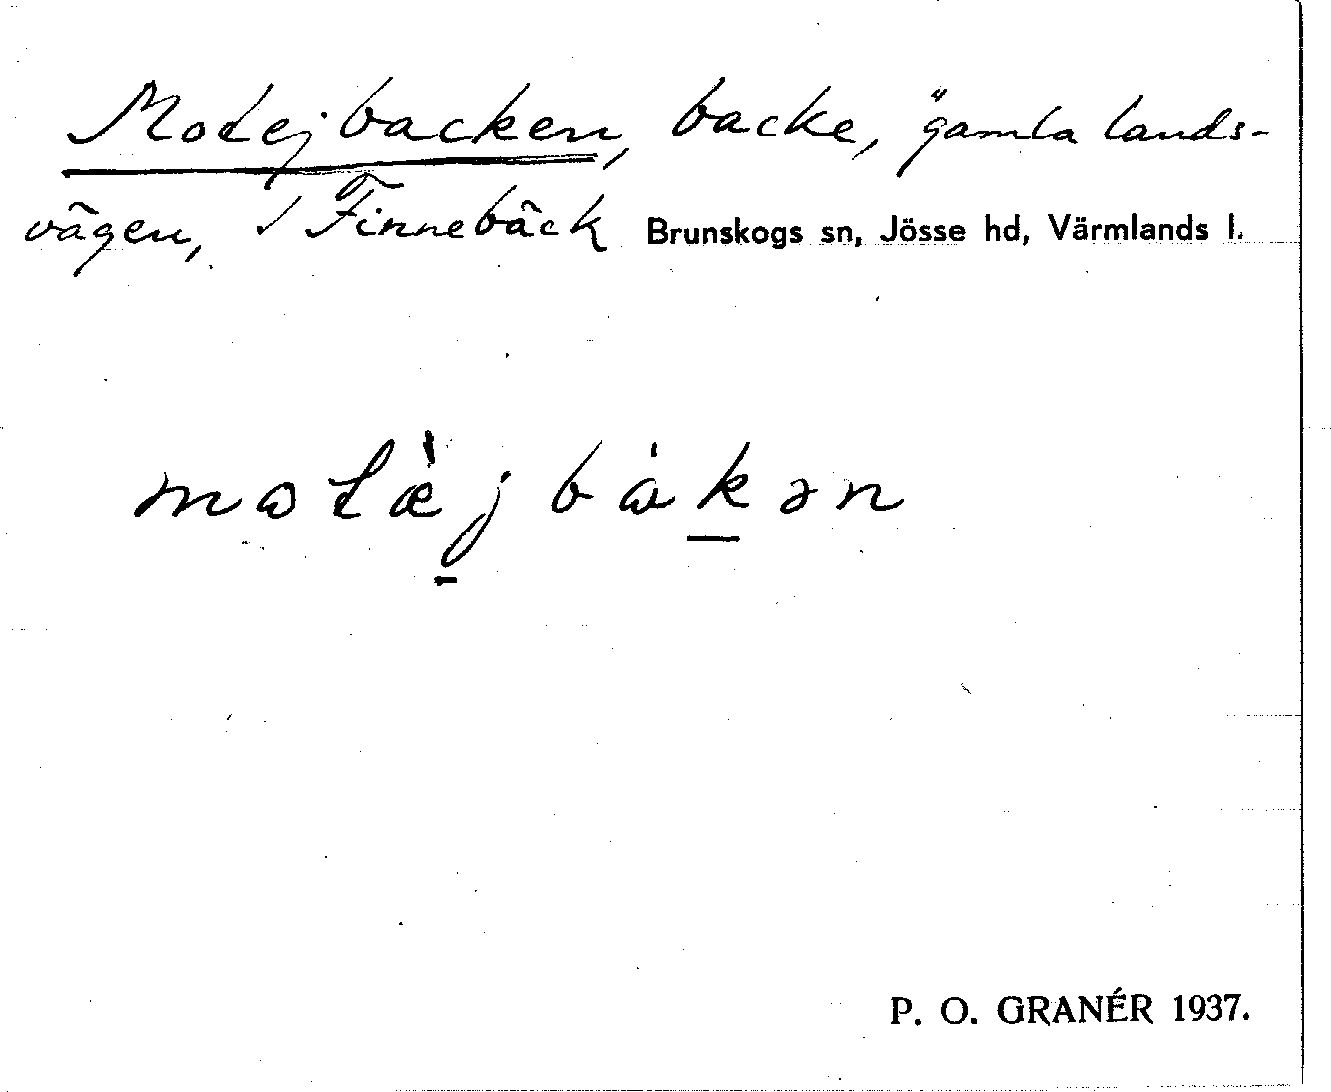 Motejbacken, backe, "gamla lands-
vägen, I Finnebäck Brunskogs sn, Jösse hd, Värmlands l.
matæ̀jbàkən
P. O. GRANÉR 1937.